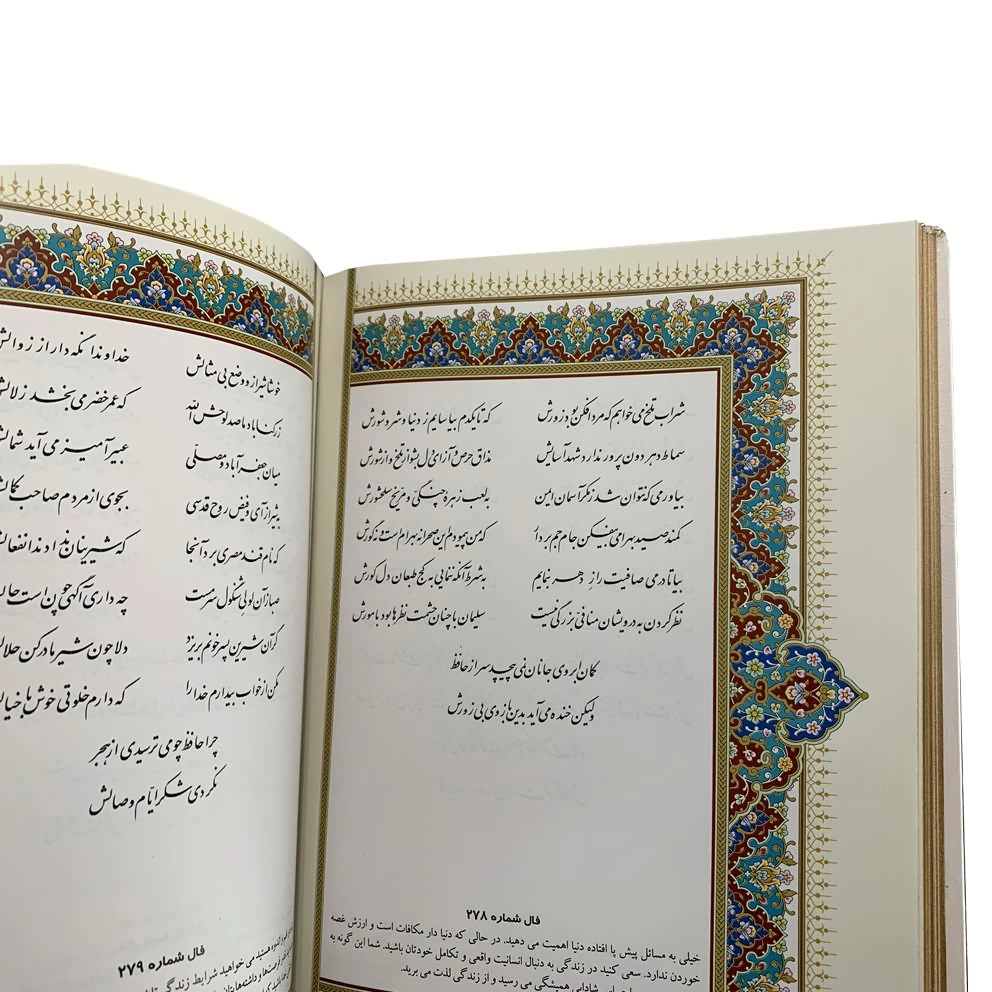 شراب تلخ می خواهم که مردافکن بود زورش که تا یکدم بیاسایم ز دنیا و شر و شورش
سماط دهر دون پرور ندارد شهد آسایش مذاق حرص و آز ای دل بشو از تلخ و از شورش
بیاور می که نتوان شد ز مکر آسمان ایمن به لعب زهره چنگی و مریخ سلحشورش
کمند صید بهرامی بیفکن جام جم بردار که من پیمودم این صحرا نه بهرام است و نه گورش
بیا تا در می صافیت راز دهر بنمایم به شرط آنکه ننمایی به کج طبعان دل کورش
نظر کردن به درویشان منافی بزرگی نیست سلیمان با چنان حشمت نظرها بود با مورش
کمان ابروی جانان نمی پیچد سر از حافظ
ولیکن خنده می آید بدین بازوی بی زورش
فال شماره ۲۷۸
خیلی به مسائل پیش پا افتاده دنیا اهمیت می دهید. در حالی که دنیا دار مکافات است و ارزش غصه
خوردن ندارد. سعی کنید در زندگی به دنبال انسانیت واقعی و تکامل خودتان باشید. شما این گونه به
شادابی همیشگی می رسید و از زندگی لذت می برید.
خوشا شیراز و وضع بی مثالش خداوندا نگه دار از زوالش
ز رکناباد ما صد لوحش الله که عمر خضر می بخشد زلالش
میان جعفرآباد و مصلی عبیر آمیز می آید شمالش
به شیراز آی و فیض روح قدسی بجوی از مردم صاحب کمالش
که نام قند مصری برد آنجا که شیرینان ندادند انفعالش
صبا زان لولی شنگول سرمست چه داری آگهی چون است حالش
گر آن شیرین پسر خونم بریزد دلا چون شیر مادر کن حلالش
مکن از خواب بیدارم خدا را که دارم خلوتی خوش با خیالش
چرا حافظ چو می ترسیدی از هجر
نکردی شکر ایام وصالش
فال شماره ۲۷۹
هستید می خواهید شرایط زندگی